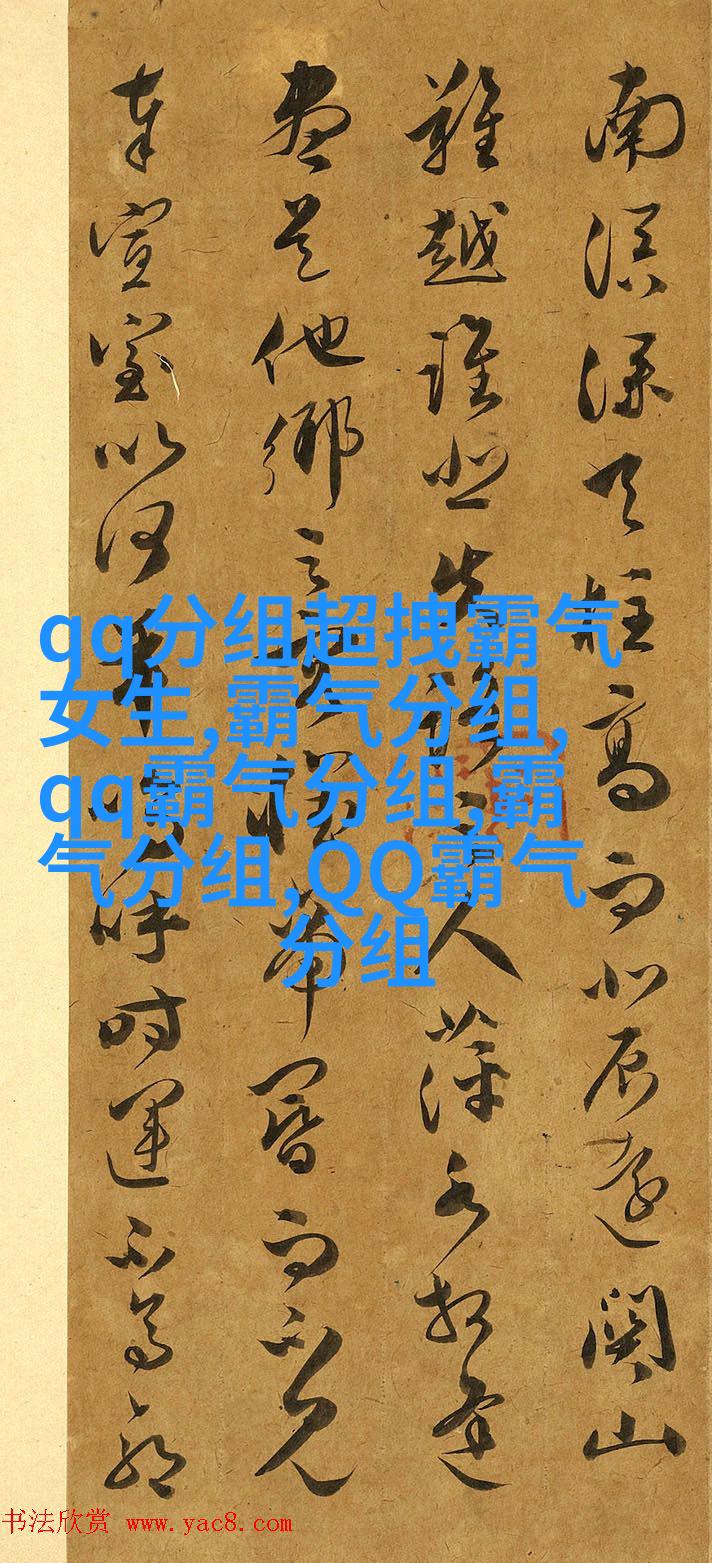 南溟深天柱高而北辰遠關山
難越誰悲失路之人萍水相逢
盡是他鄉之客懷帝閽而不見
奉宣室以何年嗚呼時運不齊命
qq分组超拽霸气
女生,霸气分组,
qq霸气分组,霸
气分组,QQ霸气
分组
书法欣赏 www.yac8.com